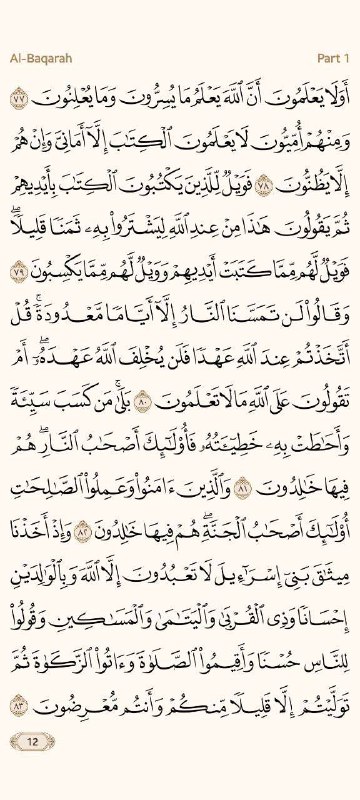 Al-Baqarah
Part 1
أَوَلَا يَعْلَمُونَ أَنَّ ٱللَّهَ يَعْلَمُ مَا يُسِرُّونَ وَمَا يُعْلِنُونَ ٧٧
وَمِنْهُمْ أُمِّيُّونَ لَا يَعْلَمُونَ ٱلْكِتَٰبَ إِلَّآ أَمَانِىَّ وَإِنْ هُمْ
إِلَّا يَظُنُّونَ ٧٨ فَوَيْلٌ لِّلَّذِينَ يَكْتُبُونَ ٱلْكِتَٰبَ بِأَيْدِيهِمْ
ثُمَّ يَقُولُونَ هَٰذَا مِنْ عِندِ ٱللَّهِ لِيَشْتَرُوا۟ بِهِۦ ثَمَنًا قَلِيلًا ۖ
فَوَيْلٌ لَّهُم مِّمَّا كَتَبَتْ أَيْدِيهِمْ وَوَيْلٌ لَّهُم مِّمَّا يَكْسِبُونَ ٧٩
وَقَالُوا۟ لَن تَمَسَّنَا ٱلنَّارُ إِلَّآ أَيَّامًا مَّعْدُودَةً ۚ قُلْ
أَتَّخَذْتُمْ عِندَ ٱللَّهِ عَهْدًا فَلَن يُخْلِفَ ٱللَّهُ عَهْدَهُۥٓ ۖ أَمْ
تَقُولُونَ عَلَى ٱللَّهِ مَا لَا تَعْلَمُونَ ٨٠ بَلَىٰ ۚ مَن كَسَبَ سَيِّئَةً
وَأَحَٰطَتْ بِهِۦ خَطِيٓـَٔتُهُۥ فَأُو۟لَٰٓئِكَ أَصْحَٰبُ ٱلنَّارِ ۖ هُمْ
فِيهَا خَٰلِدُونَ ٨١ وَٱلَّذِينَ ءَامَنُوا۟ وَعَمِلُوا۟ ٱلصَّٰلِحَٰتِ
أُو۟لَٰٓئِكَ أَصْحَٰبُ ٱلْجَنَّةِ ۖ هُمْ فِيهَا خَٰلِدُونَ ٨٢ وَإِذْ أَخَذْنَا
مِيثَٰقَ بَنِىٓ إِسْرَٰٓءِيلَ لَا تَعْبُدُونَ إِلَّا ٱللَّهَ وَبِٱلْوَٰلِدَيْنِ
إِحْسَانًا وَذِى ٱلْقُرْبَىٰ وَٱلْيَتَٰمَىٰ وَٱلْمَسَٰكِينِ وَقُولُوا۟
لِلنَّاسِ حُسْنًا وَأَقِيمُوا۟ ٱلصَّلَوٰةَ وَءَاتُوا۟ ٱلزَّكَوٰةَ ثُمَّ
تَوَلَّيْتُمْ إِلَّا قَلِيلًا مِّنكُمْ وَأَنتُم مُّعْرِضُونَ ٨٣
12